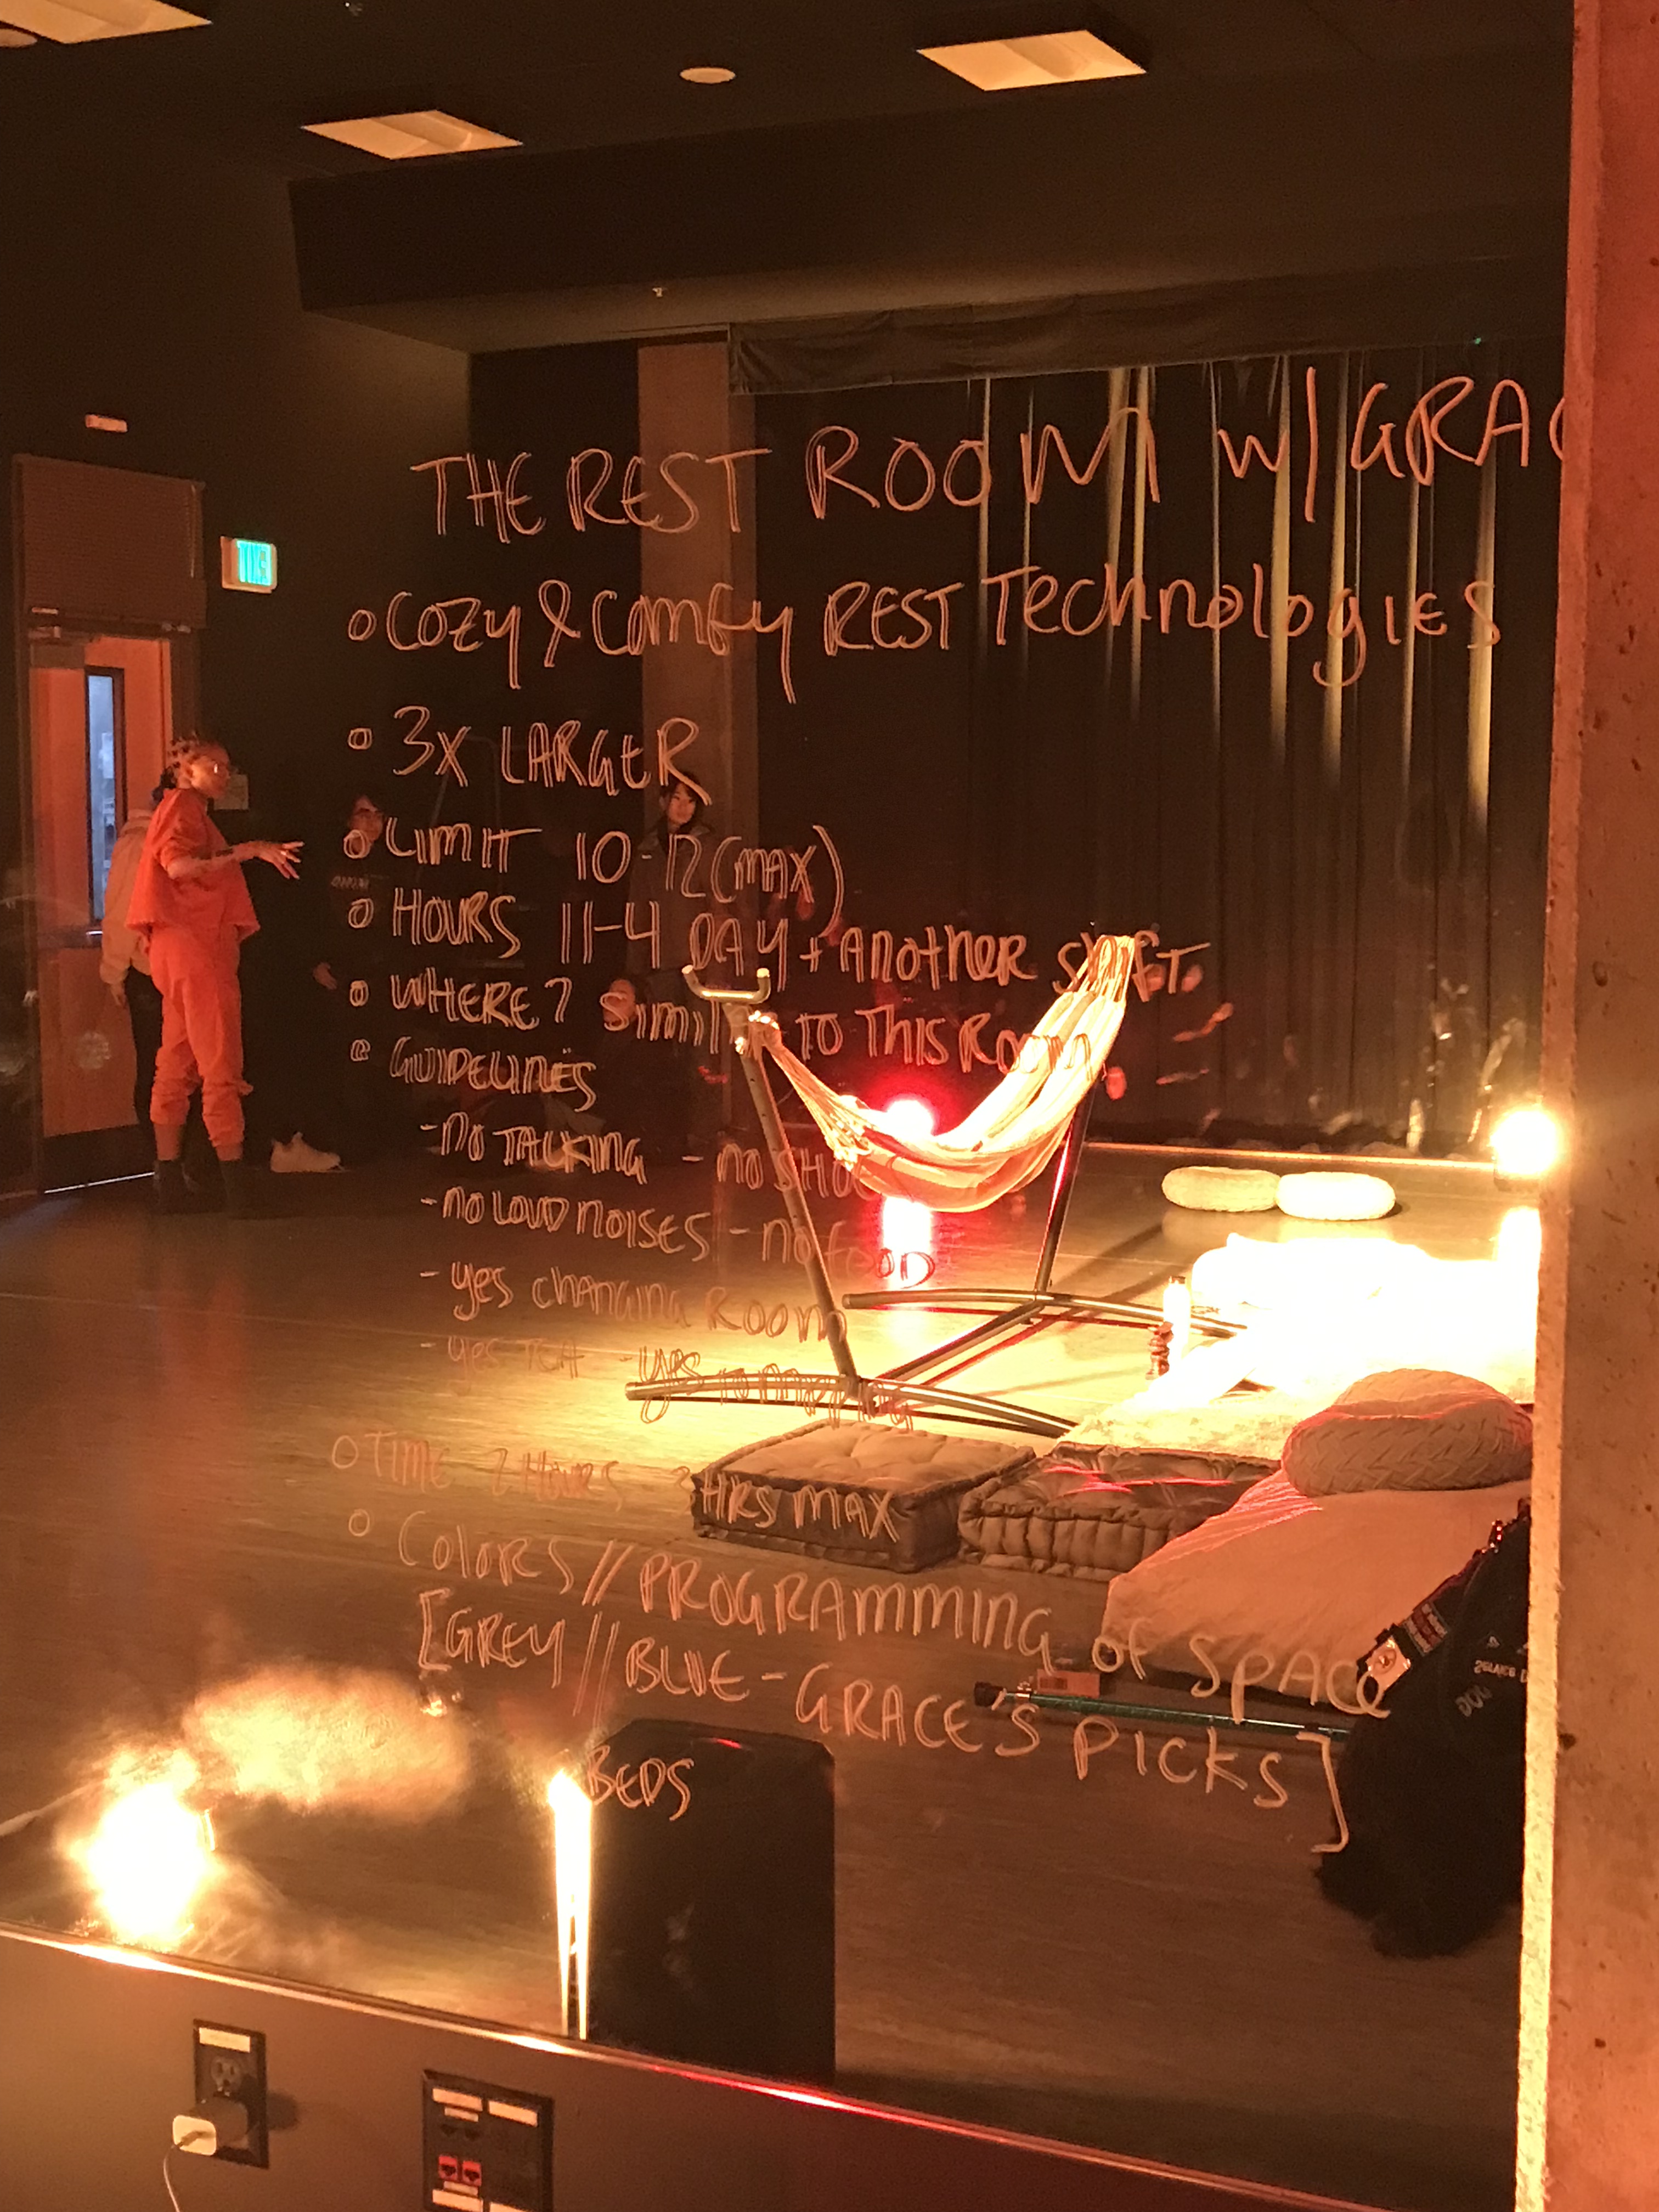 THE REST ROOM w/ GRAC
o COZY & COMFY REST TECHNOLOGIES
o 3X LARGER
o LIMIT 10-12 (MAX)
o HOURS 11-4 DAY + ANOTHER SHIFT
o WHERE? SIMILAR TO THIS ROOM
o GUIDELINES
- NO TALKING - NO SHOES
- NO LOUD NOISES - NO FOOD
- YES CHANGING ROOM
- YES TEA - YES TO NAPPING
o TIME 2 HOURS - 3 HRS MAX
o COLORS // PROGRAMMING OF SPACE
[GREY // BLUE - GRACE'S PICKS]
BEDS
Service
DOG